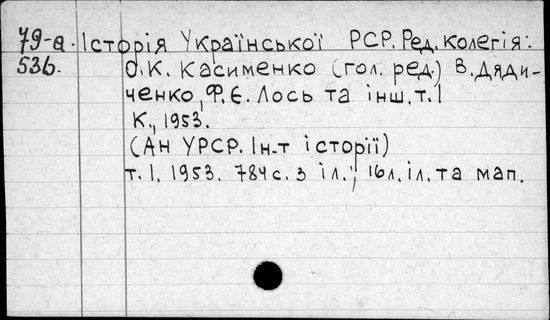 79-а. Історія Української РСР. Ред. колегія:
536. О.К. Касименко (гол. ред.) В. Дяди-
ченко, Ф.Є. Лось та інш. т. 1
К., 1953.
(Ан УРСР. Ін-т історії)
т. 1. 1953. 784 с. з іл.; 16 л. іл. та мап.